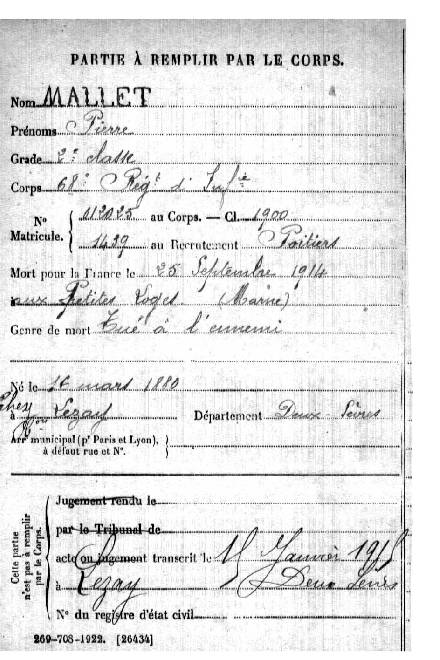 PARTIE À REMPLIR PAR LE CORPS.
Nom MALLET
Prénoms Pierre
Grade 2e classe
Corps 68e Régt d' Infie
No Matricule. { 012025 au Corps. — Cl. 1900
1439 au Recrutement Poitiers
Mort pour la France le 25 Septembre 1914
aux Petites Loges (Marne)
Genre de mort Tué à l'ennemi
Né le 14 mars 1880
à Lezay Département Deux Sèvres
Arrt municipal (pr Paris et Lyon), }
à défaut rue et No.
Cette partie
n'est pas à remplir
par le Corps.
Jugement rendu le
par le Tribunal de
acte ou jugement transcrit le 15 Janvier 1915
à Lezay (Deux Sèvres
No du registre d'état civil
269-708-1922. [26434]